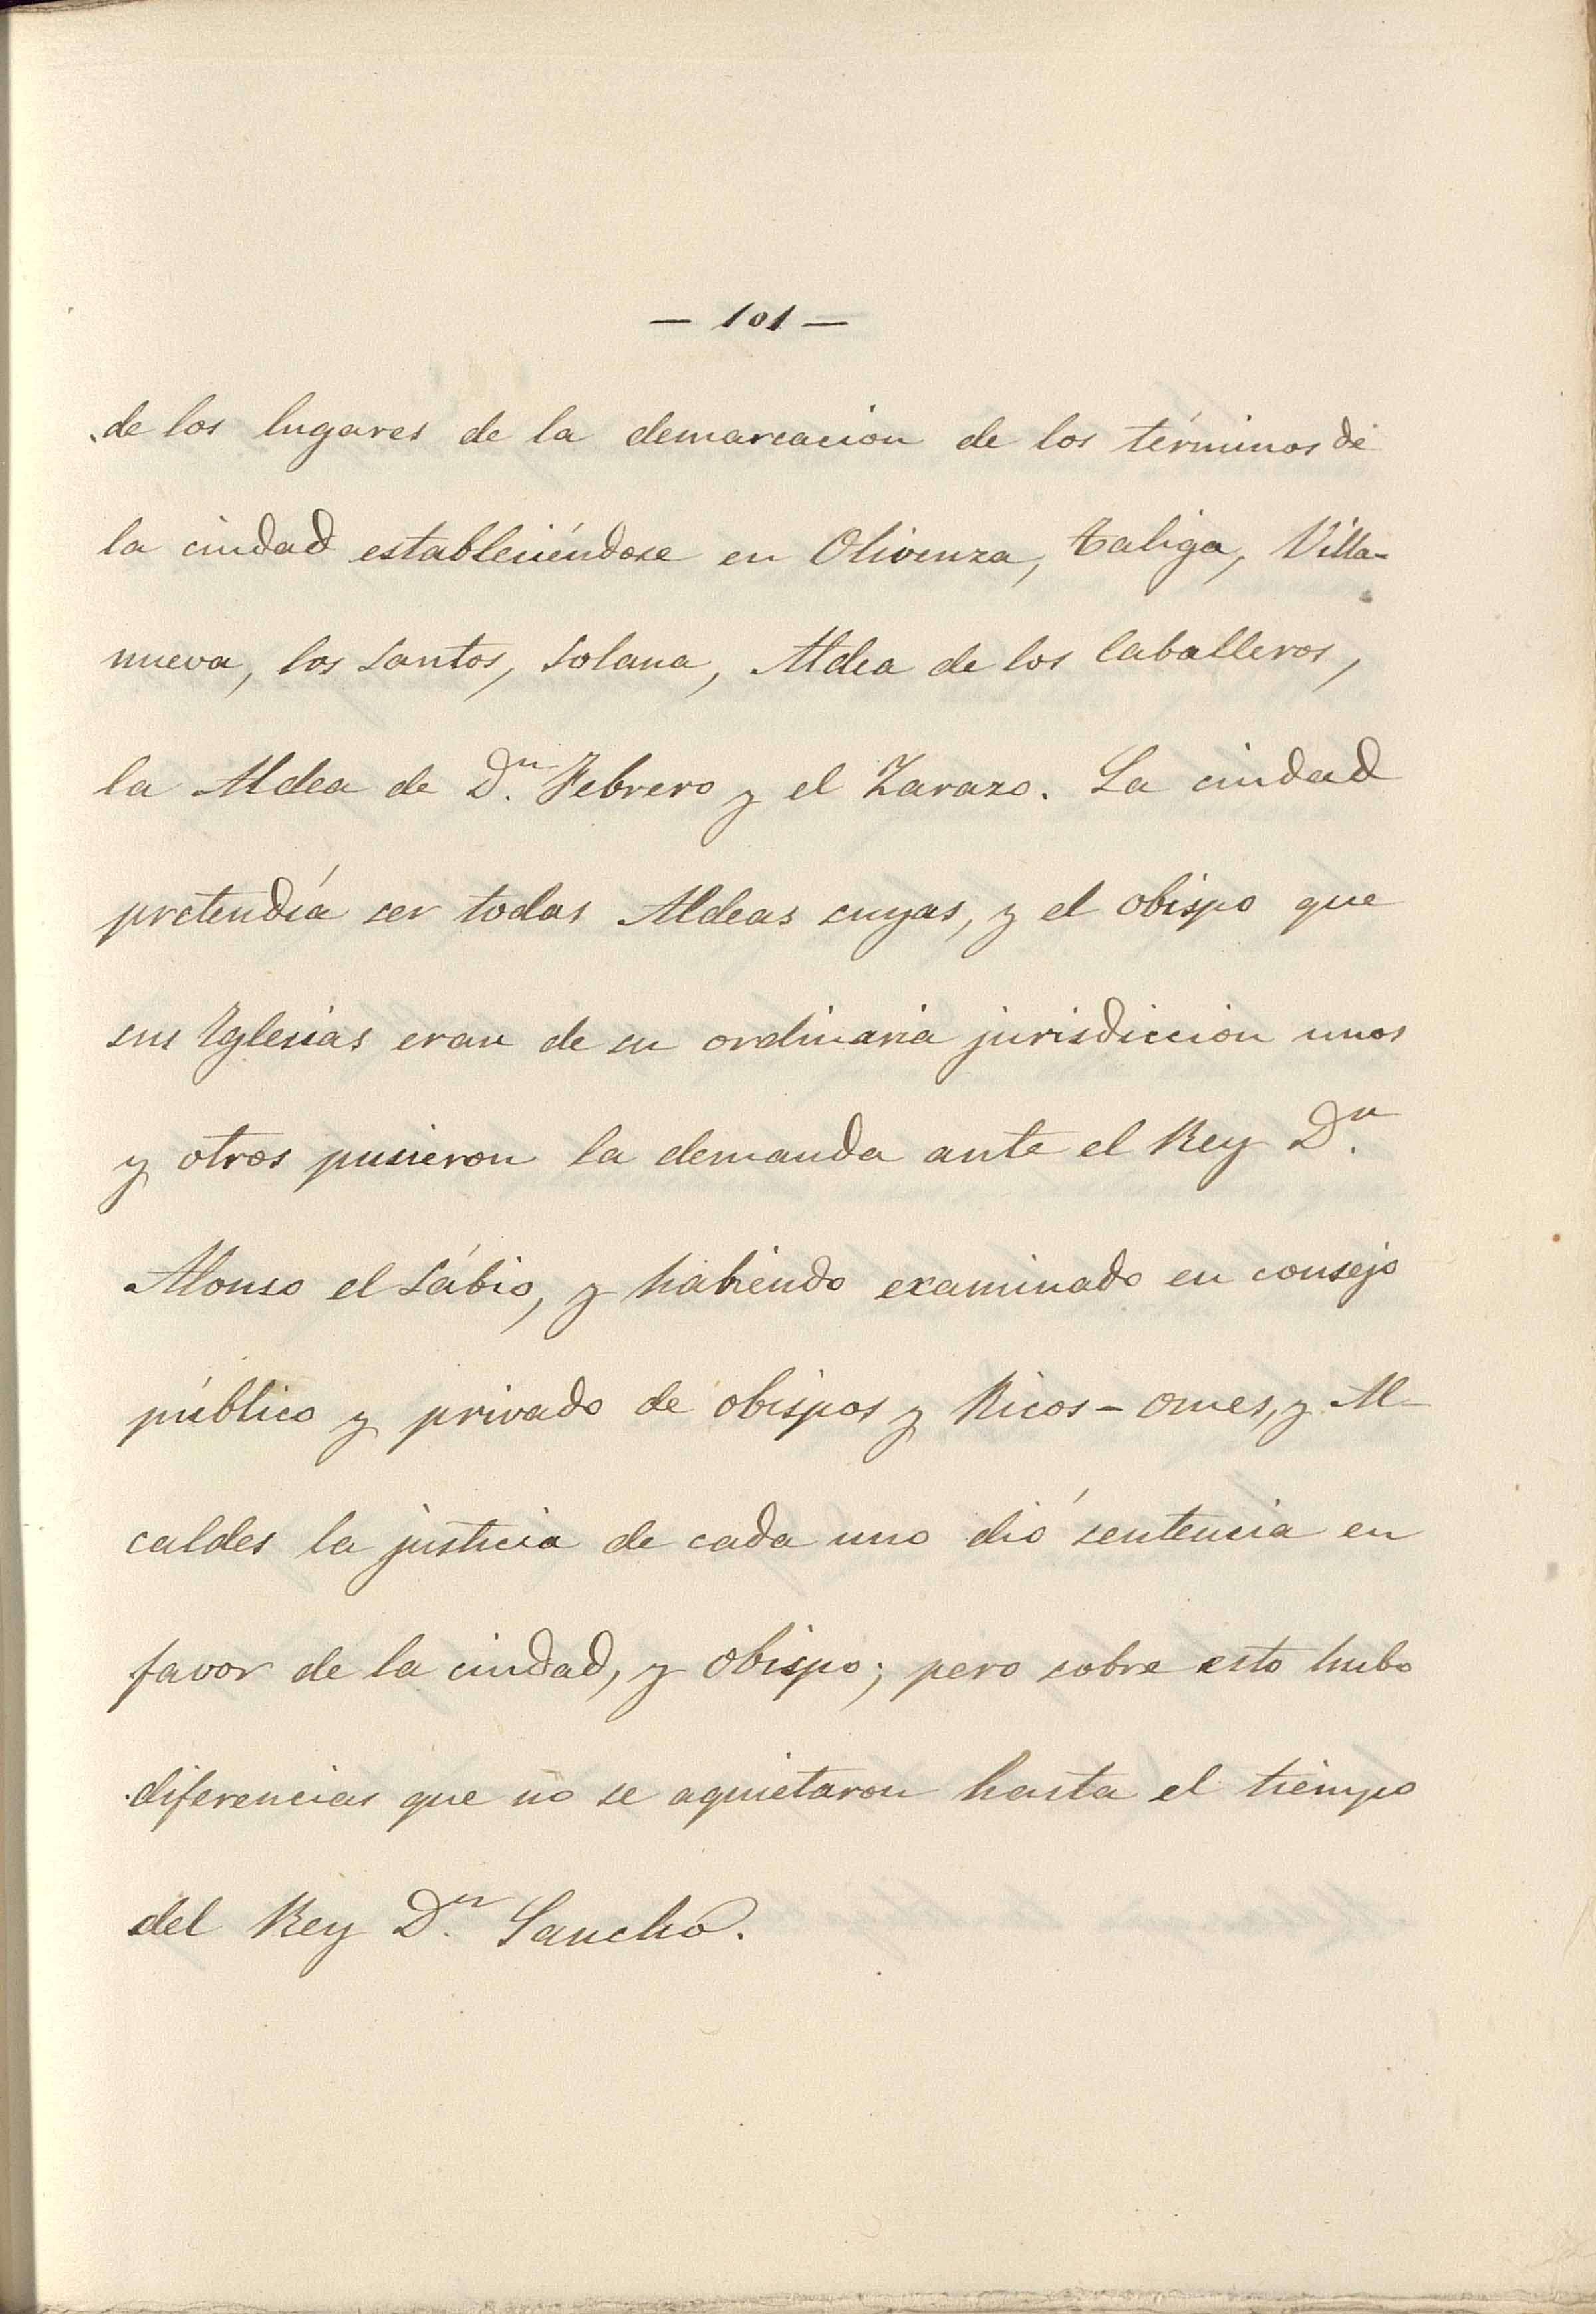 — 101 —
de los lugares de la demarcacion de los términos de
la ciudad estableciéndose en Olivenza, Taliga, Villa-
nueva, los Santos, Solana, Aldea de los Caballeros,
la Aldea de Dn. Febrero y el Zarazo. La ciudad
pretendía ser todas Aldeas suyas, y el obispo que
sus Yglesias eran de su ordinaria jurisdiccion unos
y otros pusieron la demanda ante el Rey Dn.
Alonso el Sábio, y habiendo examinado en consejo
público y privado de obispos y Ricos-omes, y Al-
caldes la justicia de cada uno dió sentencia en
favor de la ciudad, y Obispo; pero sobre esto hubo
diferencias que no se aquietaron hasta el tiempo
del Rey Dn. Sancho.